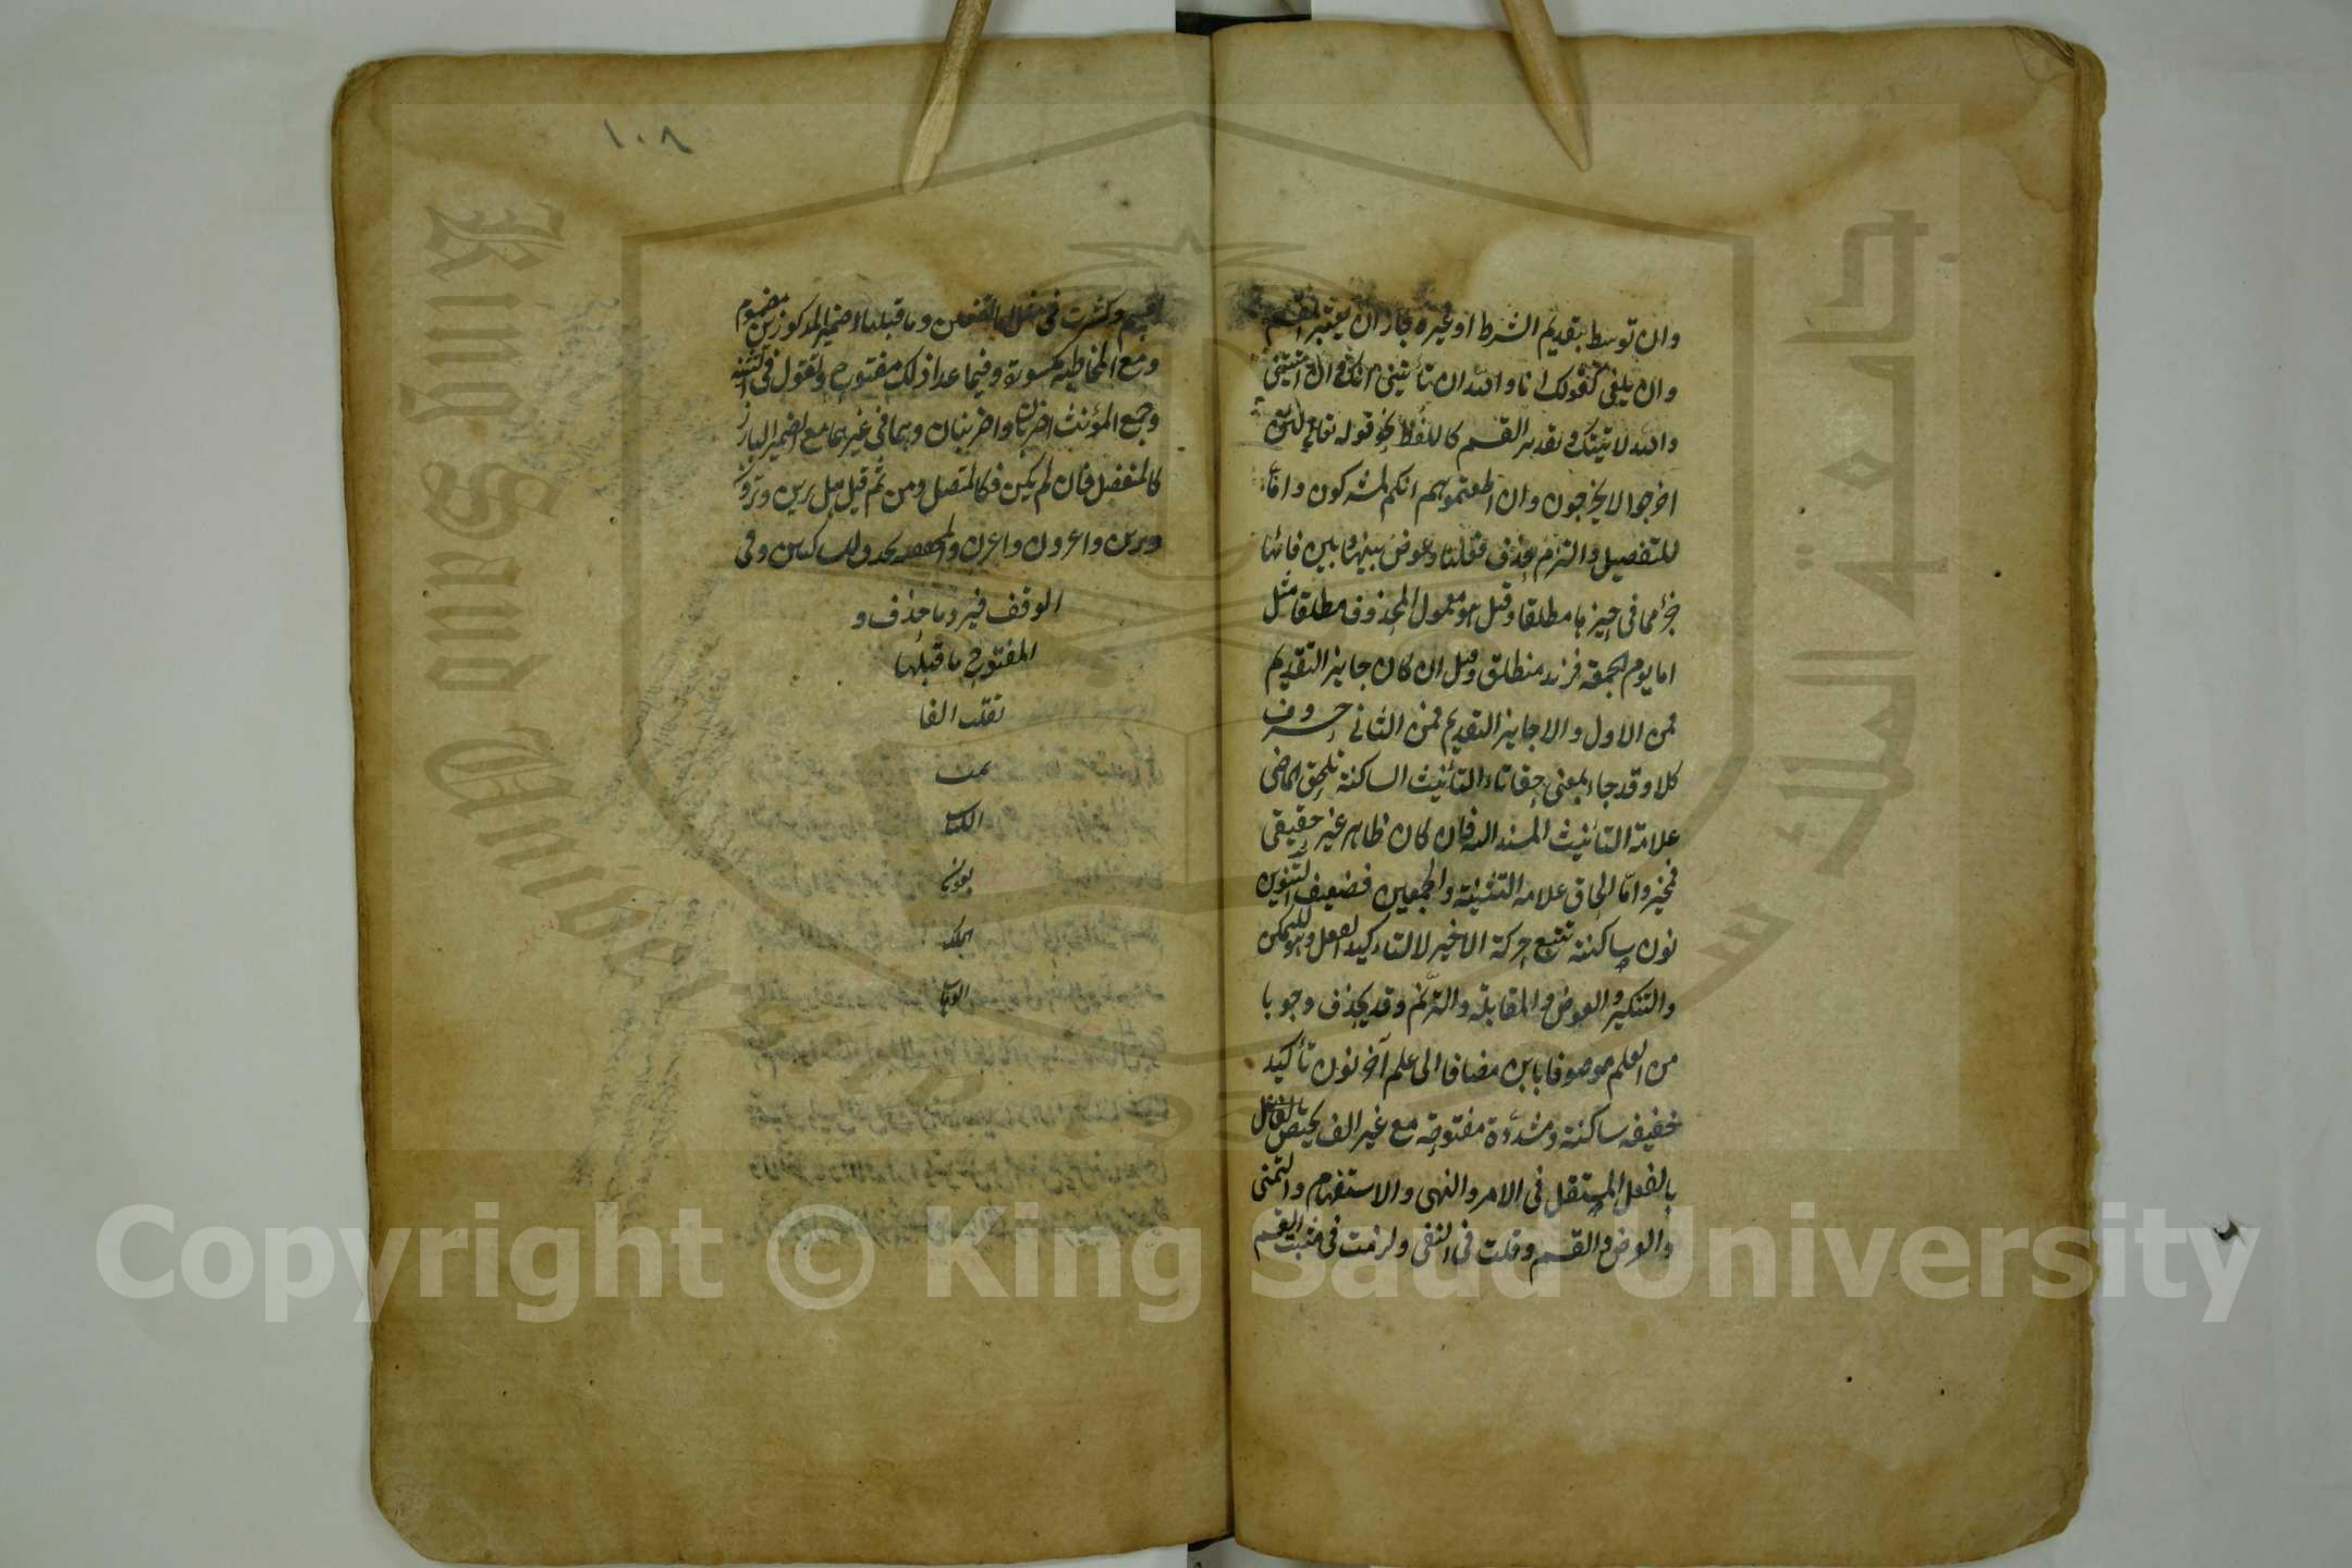 وان توسط بتقديم الشرط او غيره جاز ان يعتبر القسم
وان يلغى كقولك انا والله ان تأتيني آتك وان اتيتني
والله لاتينك وتقدير القسم كاللفظ نحو قوله تعالى لئن
اخرجوا لا يخرجون وان اطعتموهم انكم لمشركون واما
للتفصيل والتزم حذف فعلها وعوض بينها وبين فائها
جزء مما في حيزها مطلقا وقيل هو معمول المحذوف مطلقا مثل
اما يوم الجمعة فزيد منطلق وقيل ان كان جايز التقديم
فمن الاول والا جايز التقديم فمن الثاني حروف
كلا وقد جاء بمعنى حقا تاء التأنيث الساكنة تلحق الماضي
علامة التأنيث المسند اليه فان كان ظاهر غير حقيقي
فمخير واما الحاق علامة التثنية والجمعين فضعيف التنوين
نون ساكنة تتبع حركة الاخير لا لتاكيد الفعل وهو للتمكن
والتنكير والعوض والمقابلة والترنم وقد يحذف وجوبا
من العلم موصوفا بابن مضافا الى علم آخر نون تأكيد
خفيفه ساكنة ومشددة مفتوحة مع غير الف يختص
بالفعل المستقبل في الامر والنهي والاستفهام والتمني
والعرض والقسم وقلت في النفي ولزمت في مثبت القسم
١٠٨
وكثرت في مثل وما قبلها مع ضمير المذكورين مضموم
ومع المخاطبة مكسورة وفيما عدا ذلك مفتوح وتقول في التثنية
وجمع المؤنث اضربان واضربنان وهما في غيرهما مع الضمير البارز
كالمنفصل فان لم يكن فكالمتصل ومن ثم قيل هل ترين وترون
وترين واغزون واغزن والمخففة تحذف للساكنين وفي
الوقف فيرد ما حذف و
المفتوح ما قبلها
تقلب الفا
تمت
الكتاب
بعون
الملك
الوهاب
Copyright © King Saud University
King Saud University